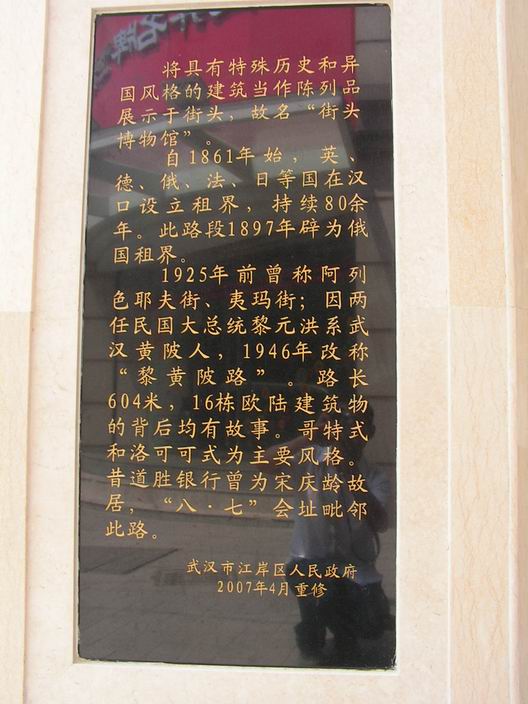 将具有特殊历史和异
国风格的建筑当作陈列品
展示于街头，故名“街头
博物馆”。
自1861年始，英、
德、俄、法、日等国在汉
口设立租界，持续80余
年。此路段1897年辟为俄
国租界。
1925年前曾称阿列
色耶夫街、夷玛街；因两
任民国大总统黎元洪系武
汉黄陂人，1946年改称
“黎黄陂路”。路长
604米，16栋欧陆建筑物
的背后均有故事。哥特式
和洛可可式为主要风格。
昔道胜银行曾为宋庆龄故
居，“八·七”会址毗邻
此路。
武汉市江岸区人民政府
2007年4月重修